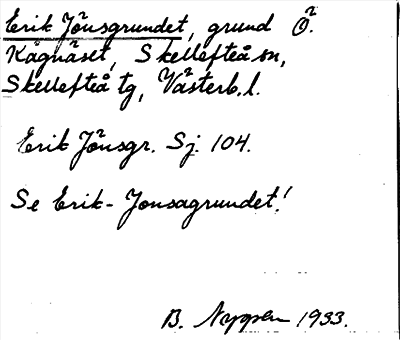 Erik Jönsgrundet, grund Ö.
Kågnäset, Skellefteå sn,
Skellefteå tg, Västerb. l.
Erik Jönsgr. Sj. 104.
Se Erik-Jonsagrundet!
B. Nygren 1933.